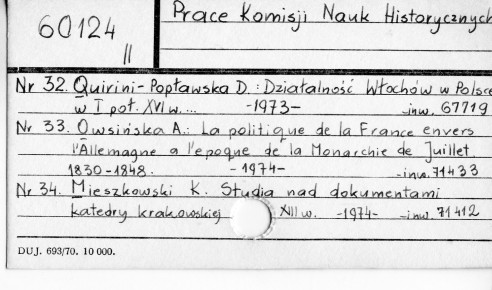 60124
II
Prace Komisji Nauk Historycznych
Nr 32. Quirini-Popławska D.: Działalność Włochów w Polsce
w I poł. XVI w. ... -1973- inw. 67719
Nr 33. Owsińska A.: La politique de la France envers
l'Allemagne a l'epoque de la Monarchie de Juillet
1830-1848. -1974- inw. 71433
Nr 34. Mieszkowski K. Studia nad dokumentami
katedry krakowskiej XIII w. -1974- inw. 71412
DUJ. 693/70. 10 000.